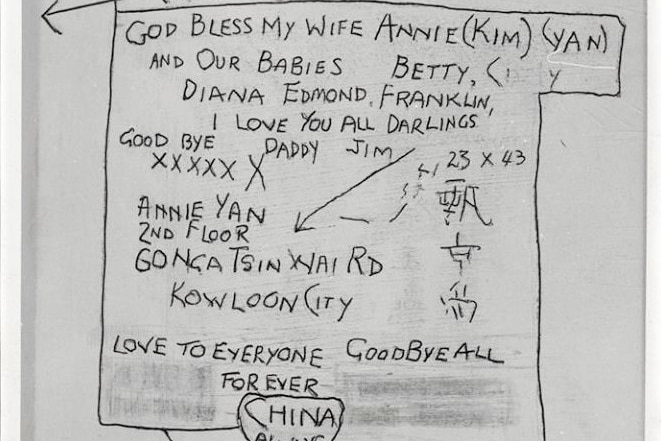 GOD BLESS MY WIFE ANNIE (KIM) (YAN)
AND OUR BABIES BETTY,
DIANA EDMOND, FRANKLIN,
I LOVE YOU ALL DARLINGS
GOOD BYE DADDY JIM
XXXXX X
23 X 43
ANNIE YAN
2ND FLOOR
GONGA TSIN WAI RD
KOWLOON CITY
LOVE TO EVERYONE GOODBYE ALL
FOREVER
CHINA